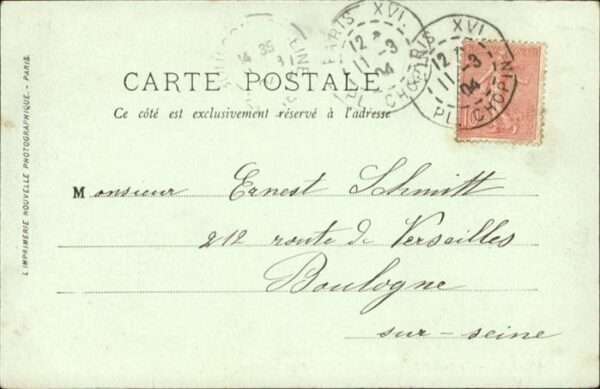 PARIS XVI
12
11 -3
04
PL. CHOPIN
PARIS XVI
12
11 -3
04
PL. CHOPIN
CARTE POSTALE
Ce côté est exclusivement réservé à l'adresse
Monsieur Ernest Schmitt
212 route de Versailles
Boulogne
sur-seine
L'IMPRIMERIE NOUVELLE PHOTOGRAPHIQUE. - PARIS.